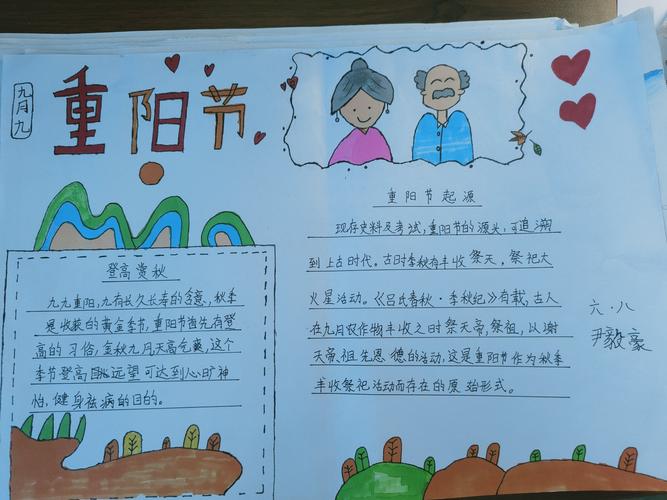 九月九
重阳节
登高赏秋
九九重阳,九有长久长寿的含意,秋季
是收获的黄金季节,重阳节首先有登
高的习俗,金秋九月天高气爽,这个
季节登高眺远望可达到心旷神
怡、健身祛病的目的。
重阳节起源
现存史料及考试,重阳节的源头,可追溯
到上古时代。古时季秋有丰收祭天、祭祀大
火星活动。《吕氏春秋·季秋纪》有载,古人
在九月农作物丰收之时祭天帝,祭祖,以谢
天帝、祖先恩德的活动,这是重阳节作为秋季
丰收祭祀活动而存在的原始形式。
六.八
尹毅豪